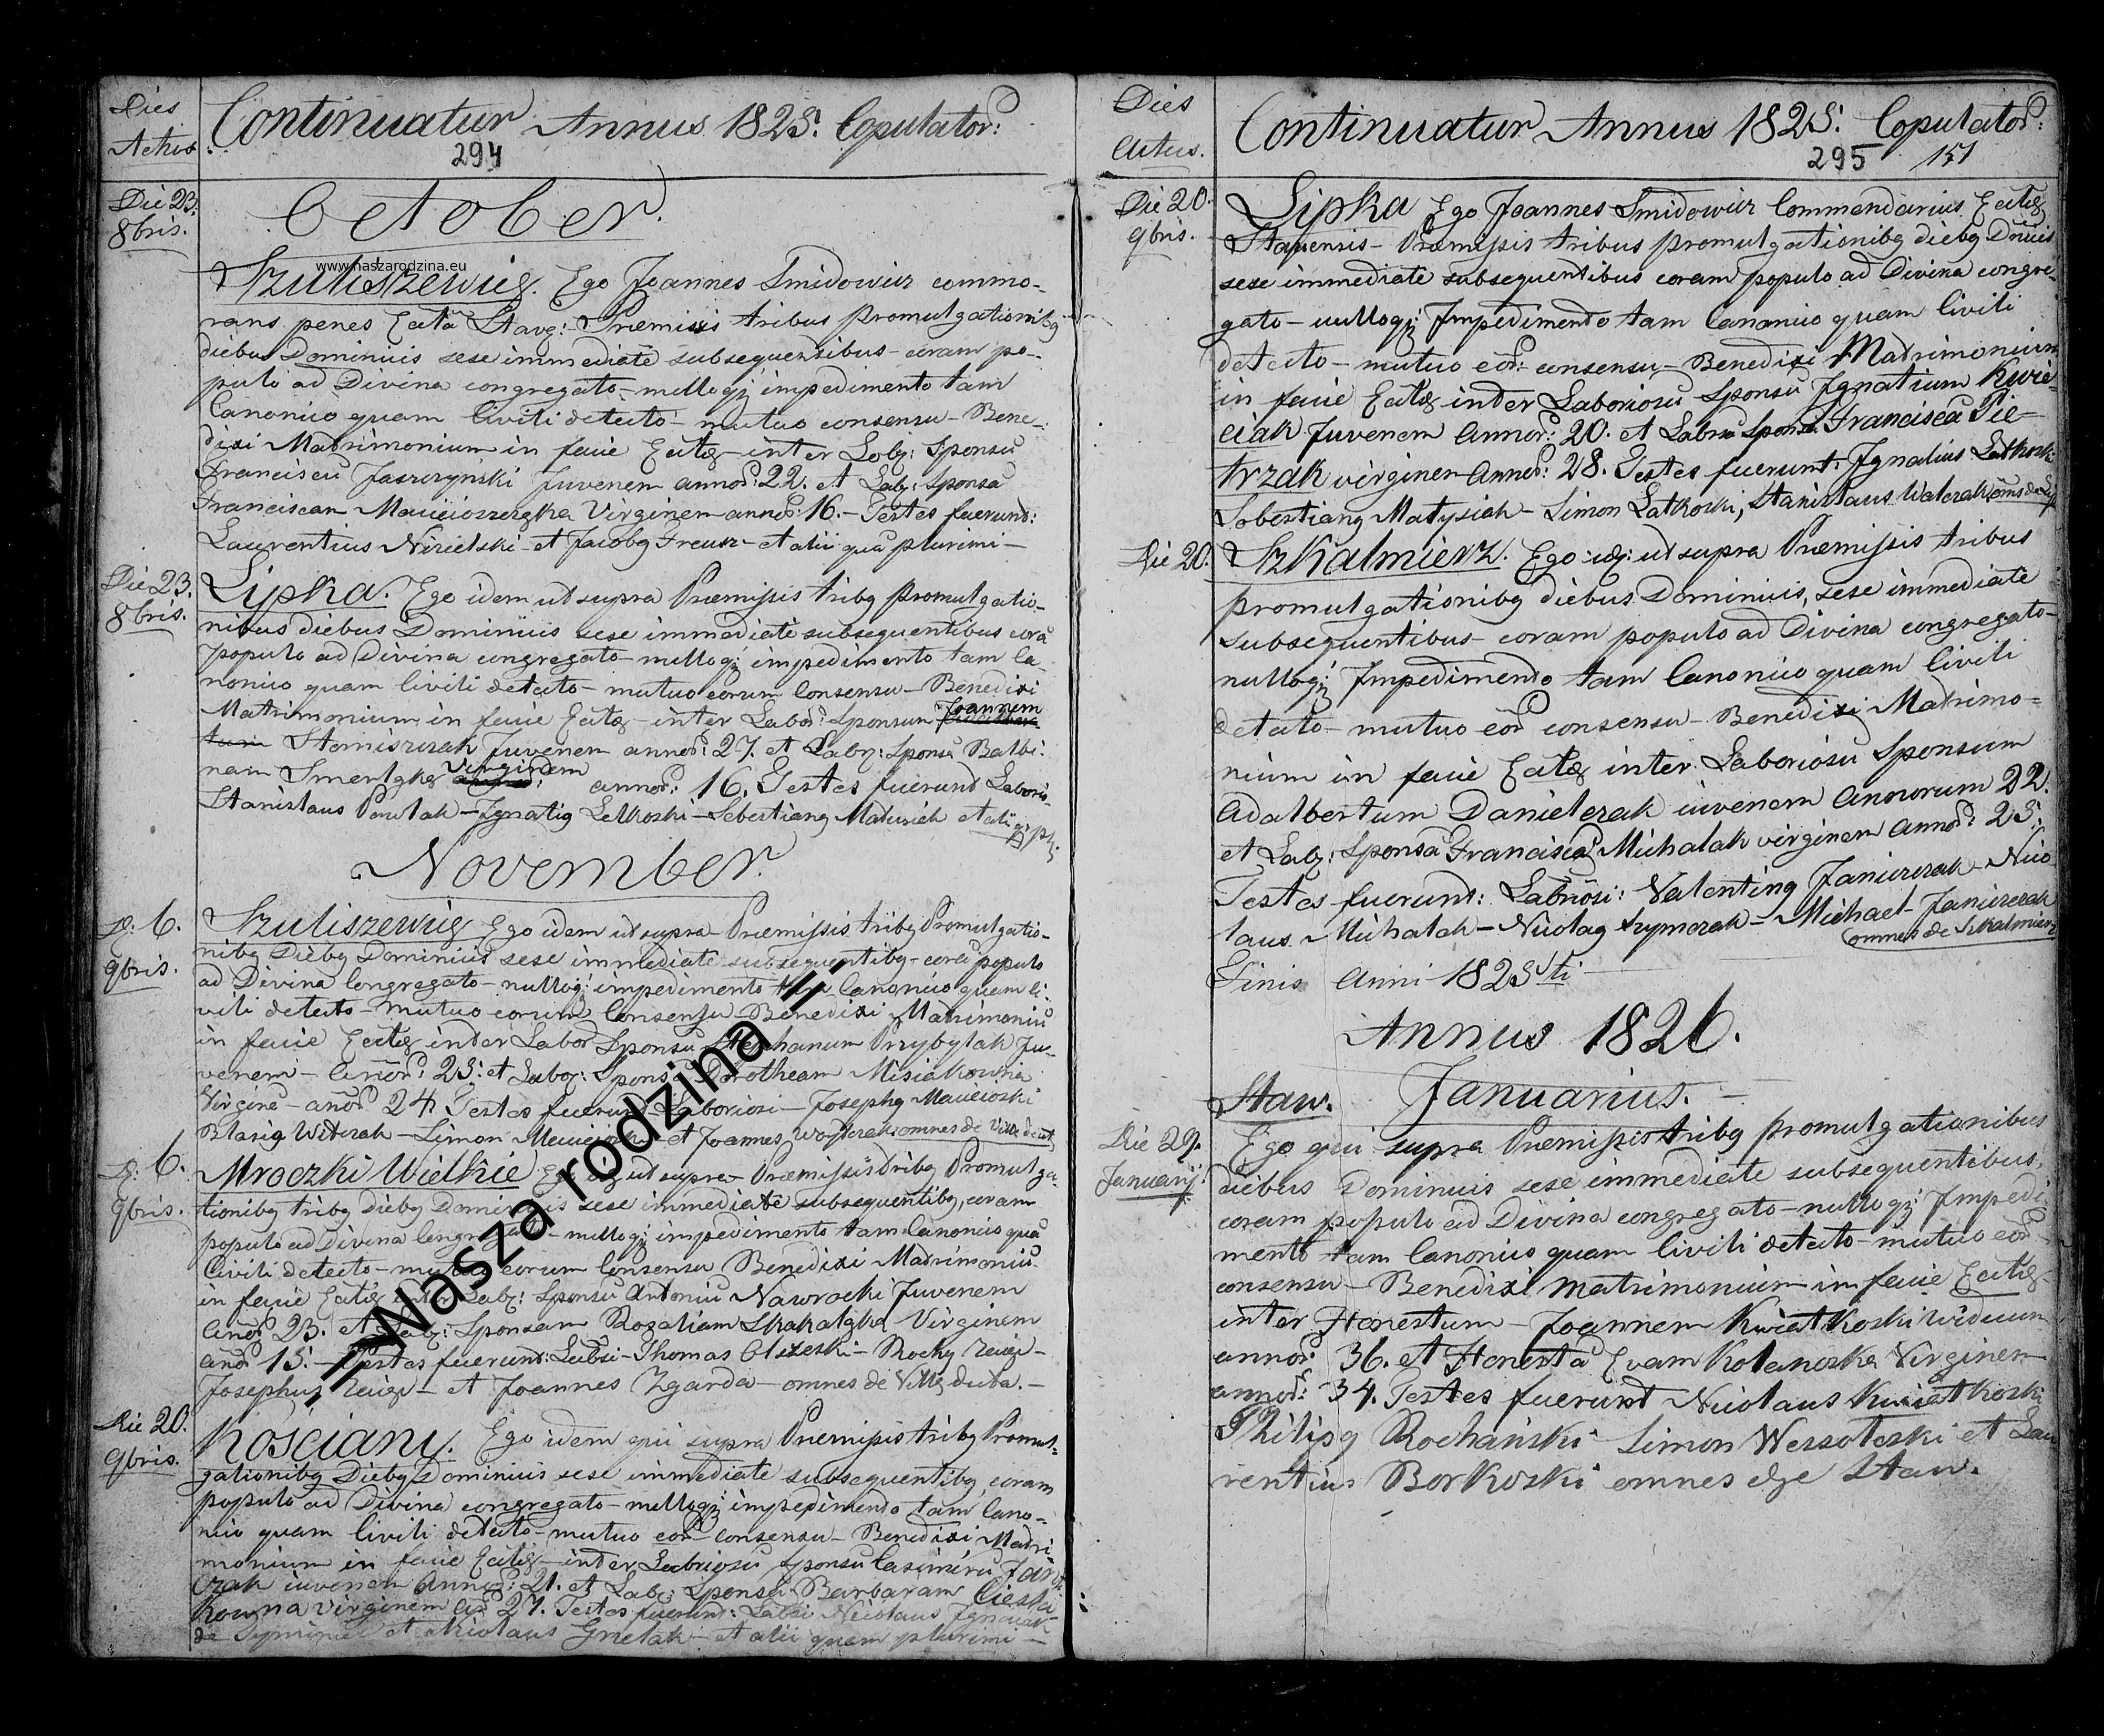 Dies
Actus
Continuatur Annus 1825. Copulator:
294
Die 23.
8bris.
October.
www.naszarodzina.eu
Szuliszewicz. Ego Joannes Smidowicz commo-
rans penes Eccta Stav: - Premissis tribus Promulgationibq
diebus Dominicis sese immediate subsequentibus - coram po-
pulo ad Divina congregato - nulloq; impedimento tam
Canonico quam Civili detecto - mutuo consensu - Bene-
dixi Matrimonium in facie Eccts inter Lab: Sponsu
Franciscu Jaszczynski Juvenem annor: 22. et Lab: Sponsa
Franciscam Virginem annor: 16. - Testes fuerunt:
Laurentius Nizielski et Jacobq - et alii qua plurimi -
Die 23.
8bris.
Lipka. Ego idem ut supra Præmissis tribq promulgatio-
nibus diebus Dominicis sese immediate subsequentibus cora
populo ad Divina congregato - nulloq; impedimento tam Ca-
nonico quam Civili detecto - mutuo eorum Consensu - Benedixi
Matrimonium in facie Eccts - inter Labor: Sponsum Joannem
Juvenem annor: 27. et Lab: Sponsa Balbi-
nam Virginem annor: 16. Testes fuerunt Laborio.
Stanislaus Pawlak - Ignatiq Latkoski - Sebestianq Matusiak et alii
q: pl.
November.
D. 6.
9bris.
Szuliszewicz Ego idem ut supra - Præmissis tribq Promulgatio-
nibq Diebq Dominicis sese immediate subsequentibq - cora populo
ad Divina Congregato - nulloq; impedimento tam Canonico quam Ci-
vili detecto - mutuo eorum Consensu - Benedixi Matrimoniu
in facie Eccts inter Labor Sponsu Stephanum Przybylak Ju-
venem - Annor: 25. et Lab: Sponsa Dorotheam Misiakowna
Virgine - anor 24 Testes fuerunt Laboriosi - Josephq Macieioski
Blasiq Witczak - Simon et Joannes omnes de Villa
D. 6.
9bris.
Mroczki Wielkie Ego ut supra - Præmissis tribq Promulga-
tionibq tribq Diebq Dominicis sese immediate subsequentibq, coram
populo ad Divina Congregato - nulloq; impedimento tam Canonico qua
Civili detecto - mutuo eorum Consensu Benedixi Matrimoniu
in facie Eccts inter Lab: Sponsu Antoniu Nawrocki Juvenem
Anor 23. et Lab: Sponsam Rozaliam Virginem
anor 15. - Testes fuerunt: Labri - Thomas Olszeski - Rochq
Josephus et Joannes Zgarda - omnes de Villa dicta. -
Die 20.
9bris.
Kosciany. Ego idem qui supra Præmissis tribq Promul-
gationibq Diebq Dominicis sese immediate subsequentibq, coram
populo ad Divina congregato - nulloq; impedimento tam Cano-
nico quam Civili detecto - mutuo eor consensu - Benedixi Matri-
monium in facie Eccts - inter Labriosu Sponsu Casimiru
iuvenem Annor: 21. et Lab: Sponsa Barbaram
virginem 27. Testes fuerunt: Labri Nicolaus
et Nicolaus et alii quam plurimi -
// Wasza rodzina //
Dies
Actus.
Continuatur Annus 1825. Copulator:
295
151
Die 20.
9bris.
Lipka Ego Joannes Smidowicz Commendarius Eccts
Stavensis - Præmissis tribus promulgationibq diebq Dnicis
sese immediate subsequentibus coram populo ad Divina congre-
gato - nulloq; Impedimento tam Canonico quam Civili
detecto - mutuo eor: consensu - Benedixi Matrimonium
in facie Eccts inter Laboriosu Sponsu Ignatium Kwie-
ciak Juvenem Annor: 20. et Labr Spons Francisca Pie-
trzak virginem Annor: 28. Testes fuerunt. Ignatius Latkoski
Sobestianq Matysiak - Simon Latkoski, Stanislaus Walczak
Die 20.
Szkalmierz. Ego ut supra Præmissis tribus
promulgationibq diebus Dominicis, sese immediate
subsequentibus - coram populo ad Divina congregato -
nulloq; Impedimento tam Canonico quam Civili
detecto - mutuo eor consensu - Benedixi Matrimo-
nium in facie Eccts inter Laboriosu Sponsum
Adalbertum Danielczak iuvenem Annorum 22.
et Lab: Sponsa Francisca Michalak virginem Annor: 25.
Testes fuerunt: Labriosi: Valentinq Janiczczak - Nico-
laus Michalak - Nicolaq Szymczak - Michael Janiczczak
omnes de Szkalmierz
Finis Anni 1825ti
Annus 1826.
Staw. Januarius.
Die 29.
Januarij.
Ego qui supra Præmissis tribq promulgationibus
diebus Dominicis sese immediate subsequentibus,
coram populo ad Divina congregato - nulloq; Impedi-
mento tam Canonico quam Civili detecto - mutuo eor -
consensu - Benedixi Matrimonium in facie Eccts
inter Honestum - Joannem Kwiatkoski viduum
annor: 36. et Honesta Evam Kolanoska Virginem
annor: 34. Testes fuerunt Nicolaus Kwiatkoski
Philipq Rochanski - Simon Wessoloski et Lau-
rentius Borkoski omnes de Staw.